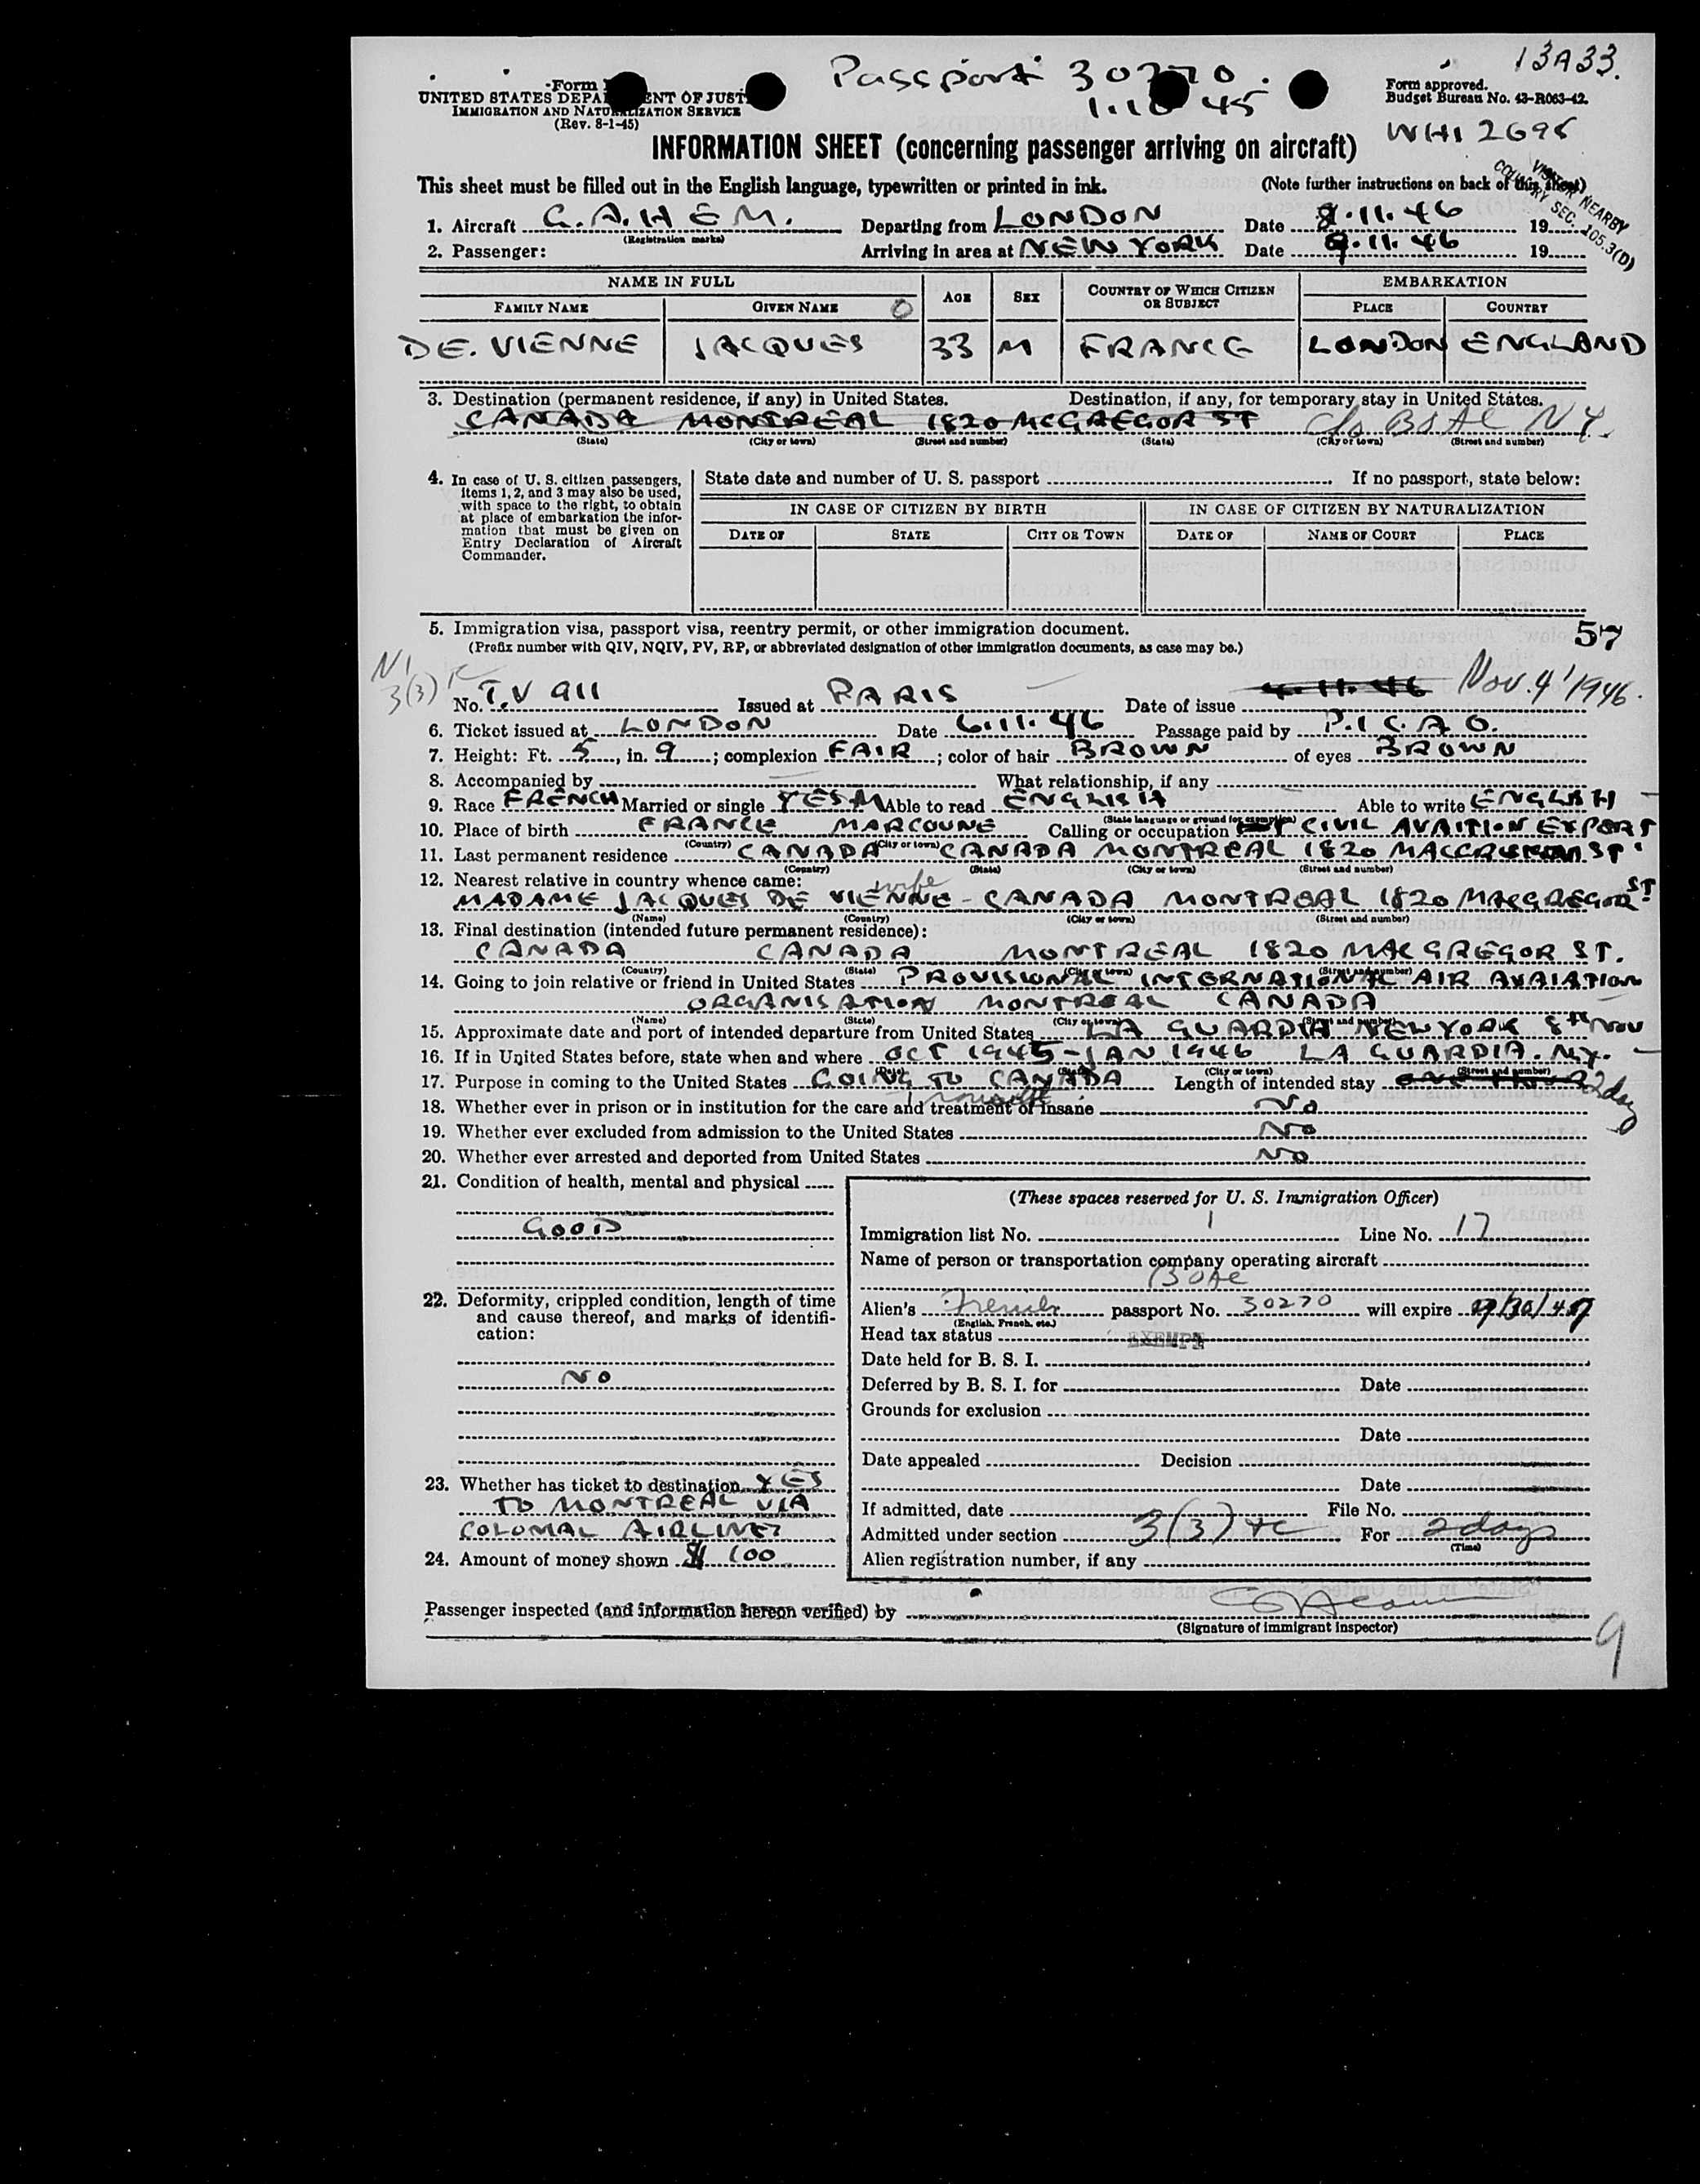 13A33.
Passport 30270.
Form
UNITED STATES DEPA ENT OF JUST
IMMIGRATION AND NATURALIZATION SERVICE
(Rev. 8-1-45)
1.10 45
Form approved.
Budget Bureau No. 43-R063-42.
INFORMATION SHEET (concerning passenger arriving on aircraft)
This sheet must be filled out in the English language, typewritten or printed in ink. (Note further instructions on back of this sheet)
VISITOR NEARBY
COUNTRY SEC. 105.3(D)
1. Aircraft G.A.H E M. Departing from LONDON Date 8.11.46 19
(Registration marks)
2. Passenger: Arriving in area at NEW YORK Date 9.11.46 19
NAME IN FULL AGE SEX COUNTRY OF WHICH CITIZEN OR SUBJECT EMBARKATION
FAMILY NAME GIVEN NAME PLACE COUNTRY
DE. VIENNE JACQUES 33 M FRANCE LONDON ENGLAND
3. Destination (permanent residence, if any) in United States. Destination, if any, for temporary stay in United States.
CANADA MONTREAL 1820 MCGREGOR ST N Y.
(State) (City or town) (Street and number) (State) (City or town) (Street and number)
4. In case of U. S. citizen passengers, items 1, 2, and 3 may also be used, with space to the right, to obtain at place of embarkation the information that must be given on Entry Declaration of Aircraft Commander.
State date and number of U. S. passport If no passport, state below:
IN CASE OF CITIZEN BY BIRTH IN CASE OF CITIZEN BY NATURALIZATION
DATE OF STATE CITY OR TOWN DATE OF NAME OF COURT PLACE
5. Immigration visa, passport visa, reentry permit, or other immigration document. 57
(Prefix number with QIV, NQIV, PV, RP, or abbreviated designation of other immigration documents, as case may be.)
3(3)
No. T.V 911 Issued at PARIS Date of issue 4.11.46 Nov. 4' 1946.
6. Ticket issued at LONDON Date 6.11.46 Passage paid by P.I.C.A.O.
7. Height: Ft. 5, in. 9; complexion FAIR; color of hair BROWN of eyes BROWN
8. Accompanied by What relationship, if any
9. Race FRENCH Married or single YES M Able to read ENGLISH Able to write ENGLISH
(State language or ground for exemption)
10. Place of birth FRANCE MARCOUNE Calling or occupation CIVIL AVAITION EXPERT
(Country) (City or town)
11. Last permanent residence CANADA CANADA MONTREAL 1820 ST
(Country) (State) (City or town) (Street and number)
12. Nearest relative in country whence came: wife
MADAME JACQUES DE VIENNE - CANADA MONTREAL 1820 MACGREGOR ST
(Name) (Country) (City or town) (Street and number)
13. Final destination (intended future permanent residence):
CANADA CANADA MONTREAL 1820 MACGREGOR ST.
(Country) (State) (City or town) (Street and number)
14. Going to join relative or friend in United States PROVISIONAL INTERNATIONAL AIR AVAIATION
ORGANISATION MONTREAL CANADA
(Name) (State) (City or town) (Street and number)
15. Approximate date and port of intended departure from United States LA GUARDIA NEW YORK 8th NOV
16. If in United States before, state when and where OCT 1945 - JAN 1946 LA GUARDIA. N.Y.
(City or town) (Street and number)
17. Purpose in coming to the United States GOING TO CANADA Length of intended stay 2 days
18. Whether ever in prison or in institution for the care and treatment of insane No
19. Whether ever excluded from admission to the United States No
20. Whether ever arrested and deported from United States No
21. Condition of health, mental and physical
GOOD
22. Deformity, crippled condition, length of time and cause thereof, and marks of identification:
NO
23. Whether has ticket to destination YES
TO MONTREAL VIA
COLONIAL AIRLINES
24. Amount of money shown $ 100
(These spaces reserved for U. S. Immigration Officer)
Immigration list No. 1 Line No. 17
Name of person or transportation company operating aircraft
BOAC
Alien's French passport No. 30270 will expire
(English, French, etc.)
Head tax status EXEMPT
Date held for B. S. I.
Deferred by B. S. I. for Date
Grounds for exclusion
Date
Date appealed Decision
Date
If admitted, date File No.
Admitted under section 3(3) For 2 days
(Time)
Alien registration number, if any
Passenger inspected (and information hereon verified) by
(Signature of immigrant inspector)
9